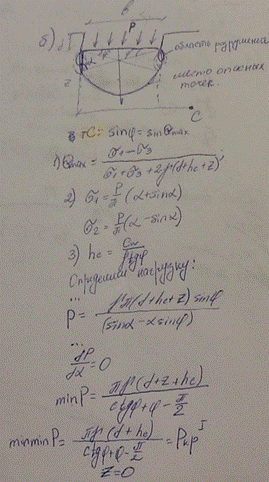 б)
в
P
d
z
область разрушения
место опасных точек.
C
в тС: sinφ = sinθmax
1) θmax = (σ1 - σ3) / (σ1 + σ3 + 2γ(d+hc+z));
2) σ1 = P/π (α + sinα)
σ2 = P/π (α - sinα)
3) hc = / γtgφ
Определим нагрузку:
...
P = γπ(d+hc+z) sinφ / (sinα - α sinφ)
...
dP/dα = 0
minP = πγ(d+z+hc) / (ctgφ+φ - π/2)
minminP = πγ(d+hc) / (ctgφ+φ - π/2) = Pкр I
z=0